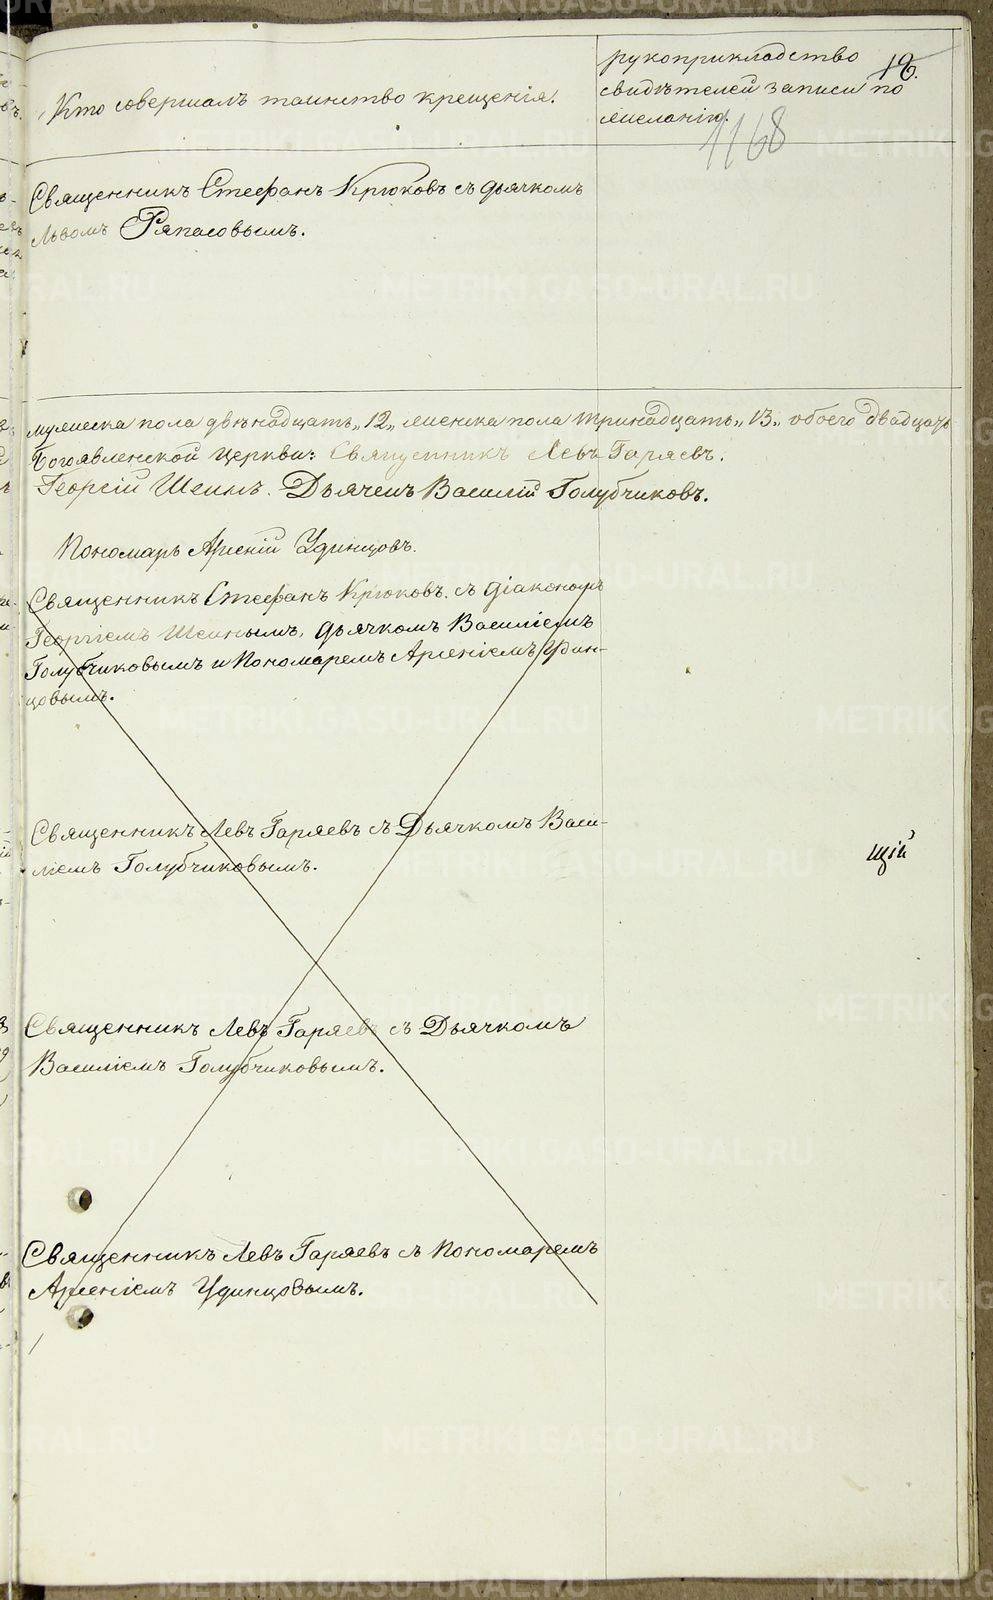 Кто совершалъ таинство крещенія.
рукоприкладство
свидѣтелей записи по
желанію.
18.
1168
Священникъ Стефанъ Крюковъ съ дьячкомъ
Львомъ Ряпасовымъ.
мужеска пола двѣнадцать „12„ женска пола тринадцать „13„ обоего двадцать
Богоявленской церкви: Священникъ Левъ Гаряевъ.
Георгій Шеинъ. Дьячекъ Василій Голубчиковъ.
Пономарь Арсеній Удинцовъ.
Священникъ Стефанъ Крюковъ съ діакономъ
Георгіемъ Шеинымъ, дьячкомъ Василіемъ
Голубчиковымъ и Пономаремъ Арсеніемъ Удин-
цовымъ.
Священникъ Левъ Гаряевъ съ Дьячкомъ Васи-
ліемъ Голубчиковымъ.
щій
Священникъ Левъ Гаряевъ съ Дьячкомъ
Василіемъ Голубчиковымъ.
Священникъ Левъ Гаряевъ съ Пономаремъ
Арсеніемъ Удинцовымъ.
METRIKI.GASO-URAL.RU